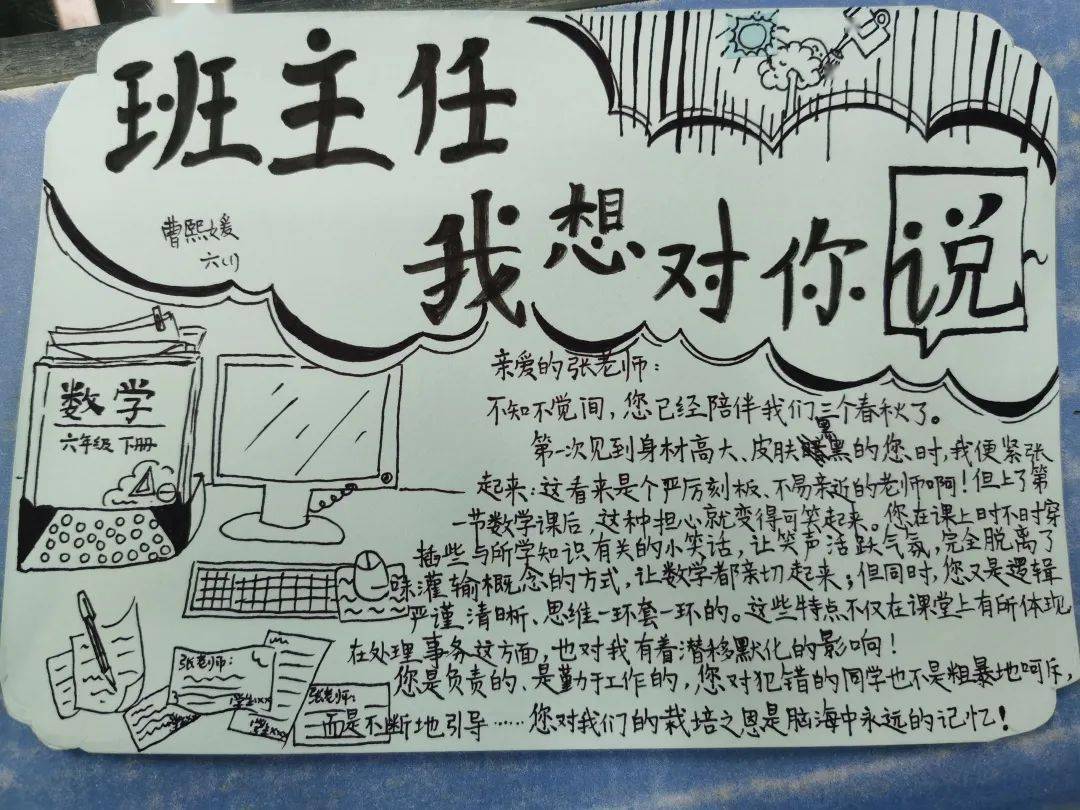 班主任
我想对你说
曹熙媛
六(1)
数学
六年级 下册
亲爱的张老师：
不知不觉间，您已经陪伴我们三个春秋了。
第一次见到身材高大、皮肤黑黑的您时，我便紧张
起来：这看来是个严厉刻板、不易亲近的老师啊！但上了第
一节数学课后，这种担心就变得可笑起来。您在课上时不时穿
插些与所学知识有关的小笑话，让笑声活跃气氛，完全脱离了
味灌输概念的方式，让数学都亲切起来；但同时，您又是逻辑
严谨、清晰、思维一环套一环的。这些特点不仅在课堂上有所体现
在处理事务这方面，也对我有着潜移默化的影响！
您是负责的、是勤于工作的，您对犯错的同学也不是粗暴地呵斥，
而是不断地引导……您对我们的栽培之恩是脑海中永远的记忆！
张老师：
学生xxx
张老师：
学生xxx